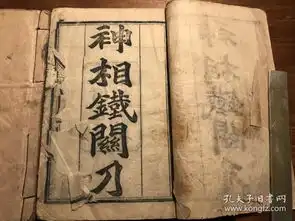 神相鐵關刀
孔夫子旧书网
www.kongfz.com